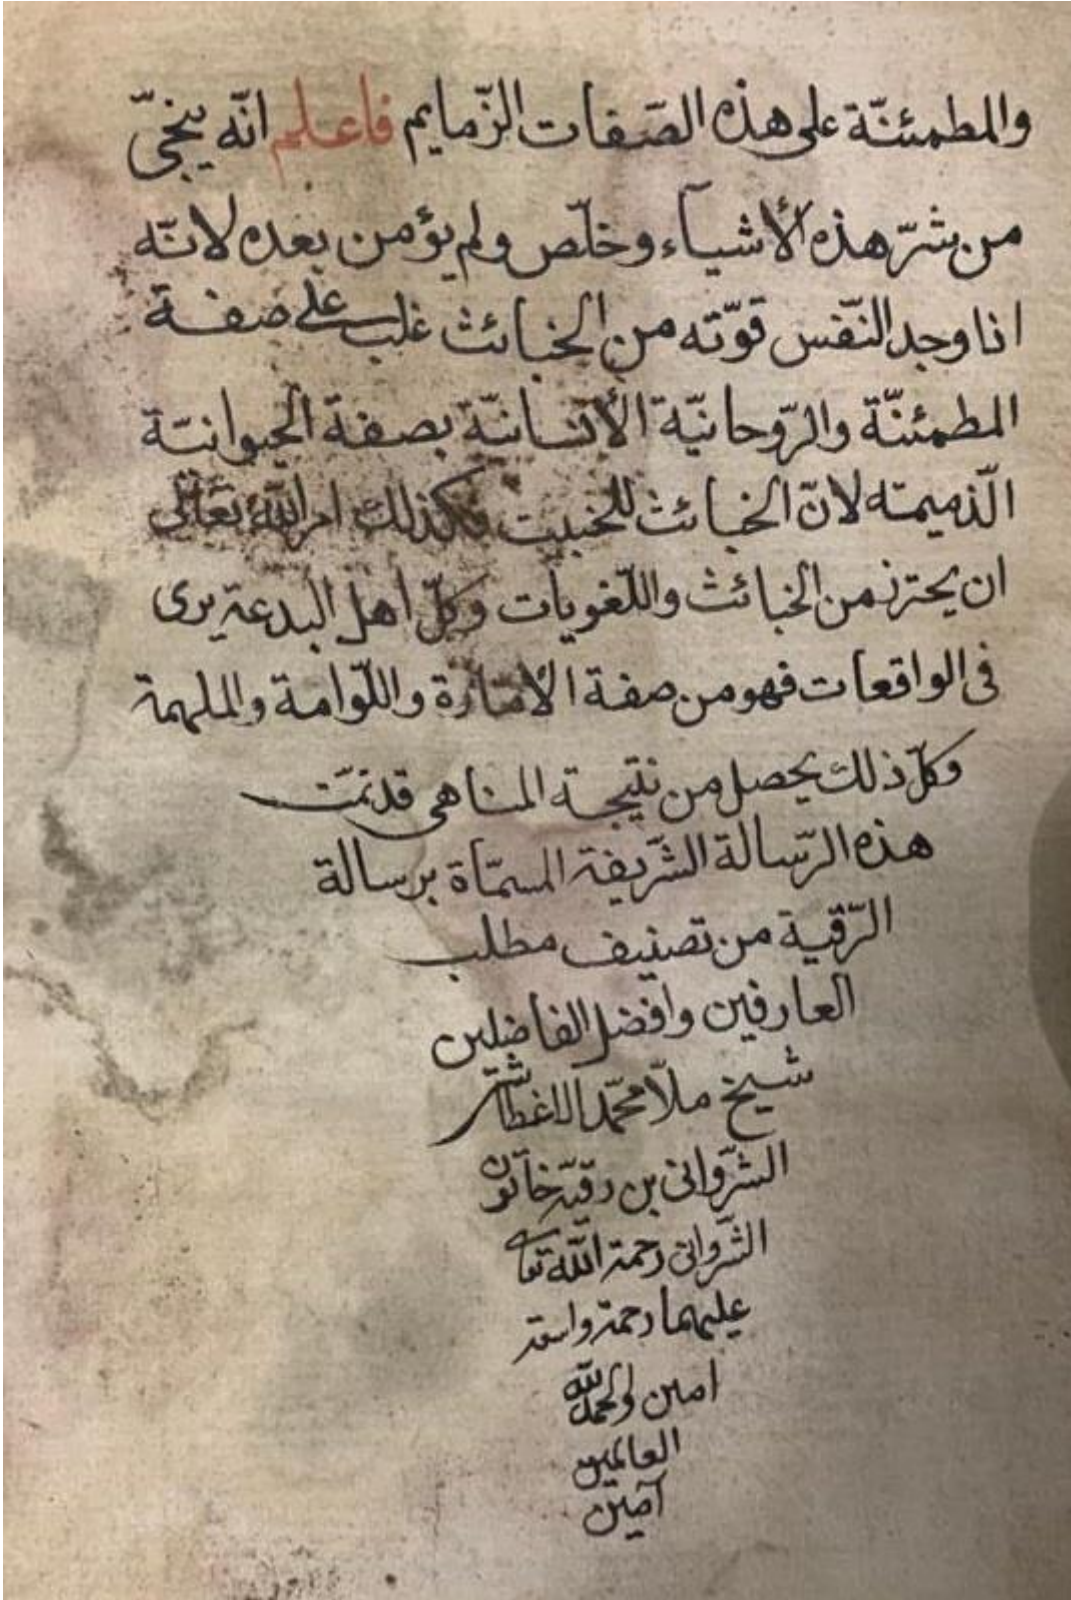 والمطمئنّة على هذه الصّفات الزّمايم فاعلم انّه ينجّى
من شرّ هذه الأشياء وخلّص ولم يؤمن بعده لانّه
اذا وجد النّفس قوّته من الخبائث غلب على صفة
المطمئنّة والرّوحانيّة الأنسانيّة بصفة الحيوانيّة
الّذميمة لانّ الخبائث للخبيث فكذلك امر اللّه تعالى
ان يحترز من الخبائث واللّغويات وكلّ اهل البدعة يرى
فى الواقعات فهو من صفة الأمّارة واللّوامة والملهمة
وكلّ ذلك يحصل من نتيجة المناهى قد تمّت
هذه الرّسالة الشّريفة المسمّاة برسالة
الرّقية من تصنيف مطلب
العارفين وافضل الفاضلين
شيخ ملّا محمّد
الشّروانى بن رقيّة خاتون
الشّروانى رحمة اللّه تعالى
عليهما رحمة واسعة
امين والحمد للّه
العالمين
آمين